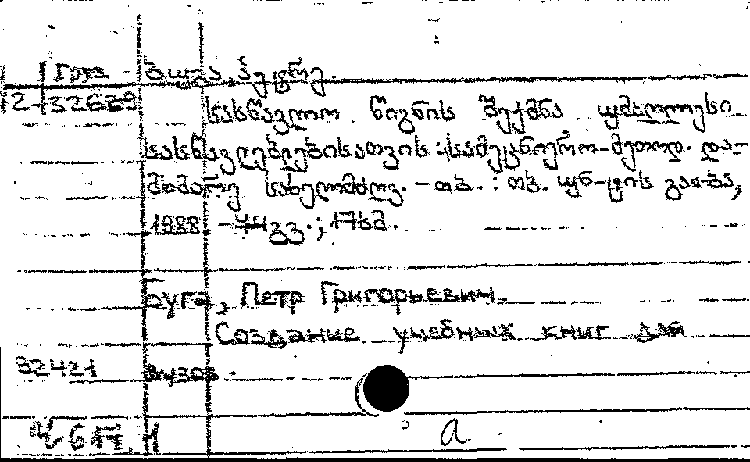 Груз ბუგა, პეტრე.
სასწავლო წიგნის შექმნა უმაღლესი
სასწავლებლებისათვის : სამეცნიერო-მეთოდ. და-
მხმარე სახელმძღვ. - თბ. : თბ. უნ-ტის გამ-ბა,
1988 - 44გვ. ; 17სმ.
Буга, Петр Григорьевич.
Создание учебных книг для
32421 вузов.
а